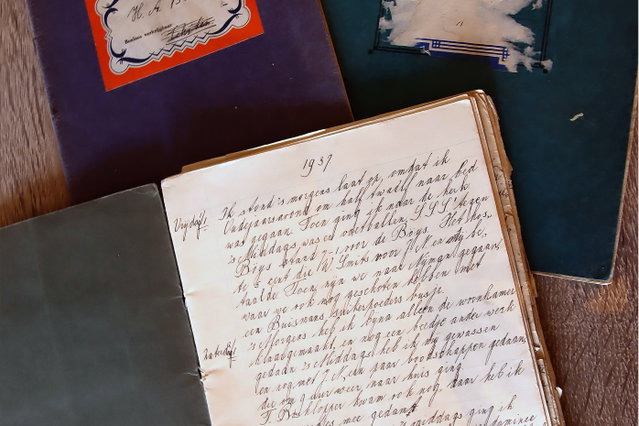 H. A. B.
1937
Vrijdag 1
Ik stond 's morgens laat op, omdat ik
Oudejaarsavond om half twaalf naar bed
was gegaan. Toen ging ik naar de kerk
's Middags was er voetballen, S.S.S. tegen
Boys. Stand 7-1 voor de Boys. Het kos-
te 5 cent die W. Smits voor J. N. en mij be-
taalde. Toen zijn we naar gegaan,
waar we ook nog geschoten hebben met
een Buismans suikerpoeders busje.
Zaterdag 2
's Morgens heb ik bijna alleen de woonkamer
klaargemaakt, en nog een beetje ander werk
gedaan. 's Middags heb ik mij gewassen
en nog met J. N. een paar boodschappen gedaan,
die om 9 uur weer naar huis ging.
kwam ook nog, daar heb ik
mee gedamt
's middags ging ik
dominee